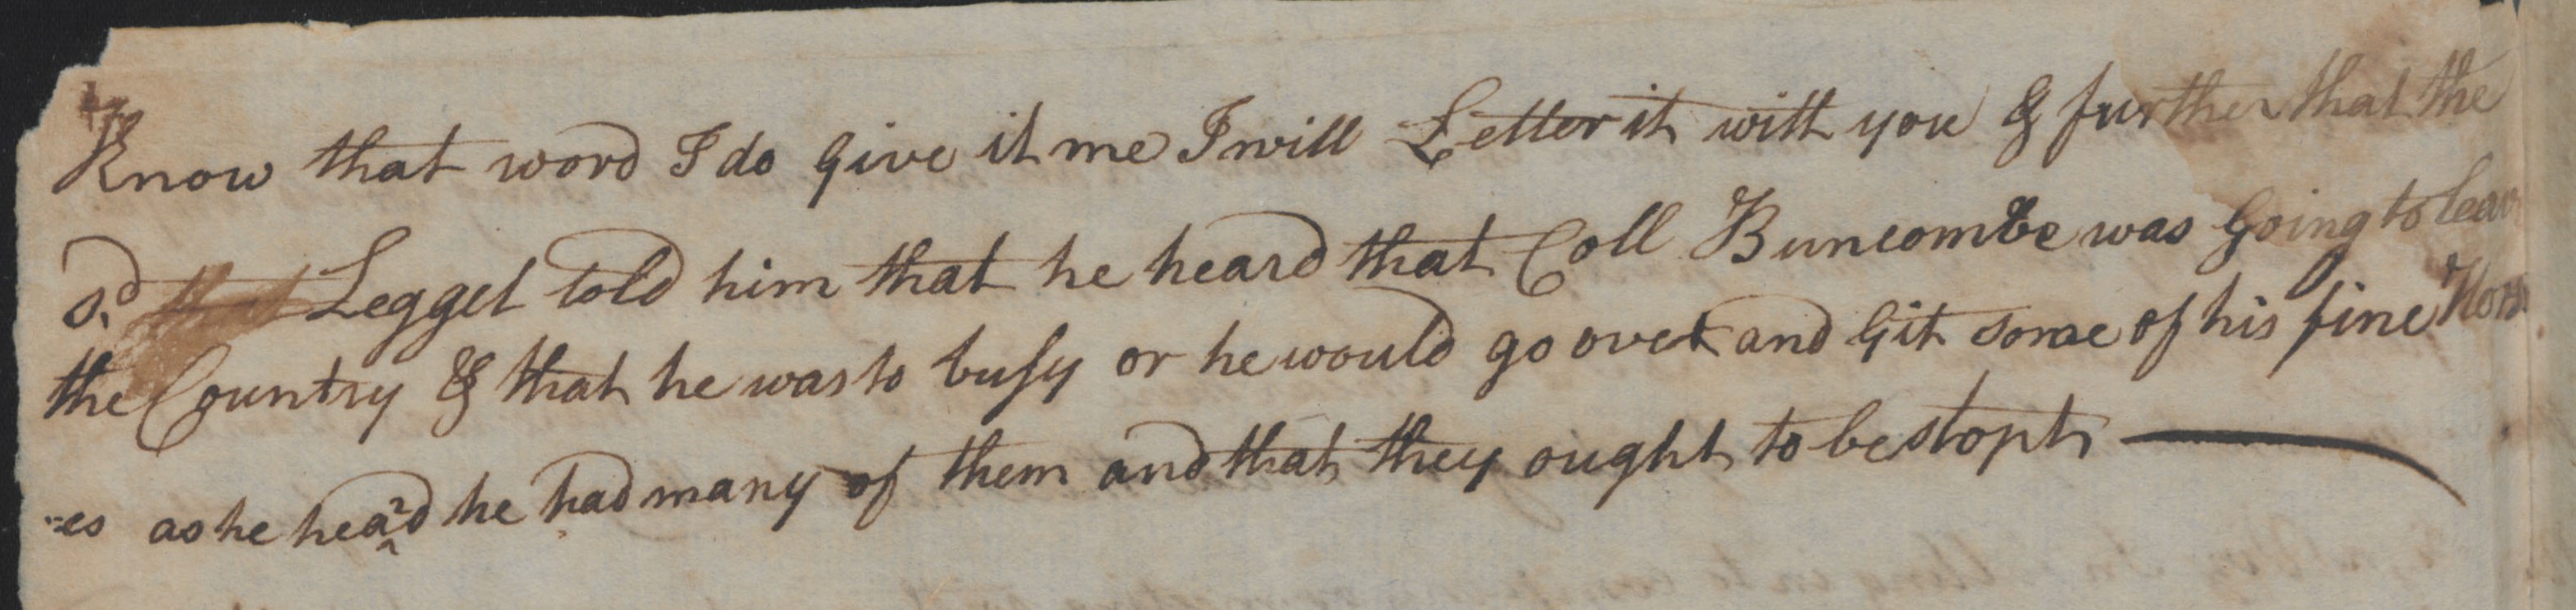 Know that word I do give it me I will Letter it with you & further that the
sd Legget told him that he heard that Coll Buncombe was Going to leav
the Country & that he was to busy or he would go over and Git some of his fine Hors
=es as he heard he had many of them and that they ought to be stopt